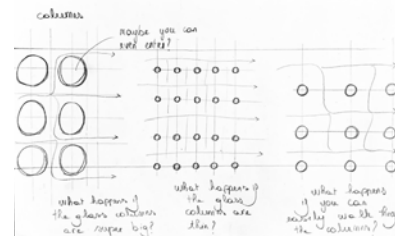 columns
maybe you can
even enter?
what happens if
the glass columns
are super big?
what happens if
the glass
columns are
thin?
what happens
if you can
easily walk thru
the columns?